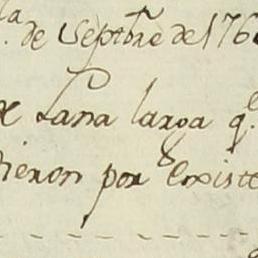 la de Septbre de 176
de Lana larga q.e
dieron por Existe